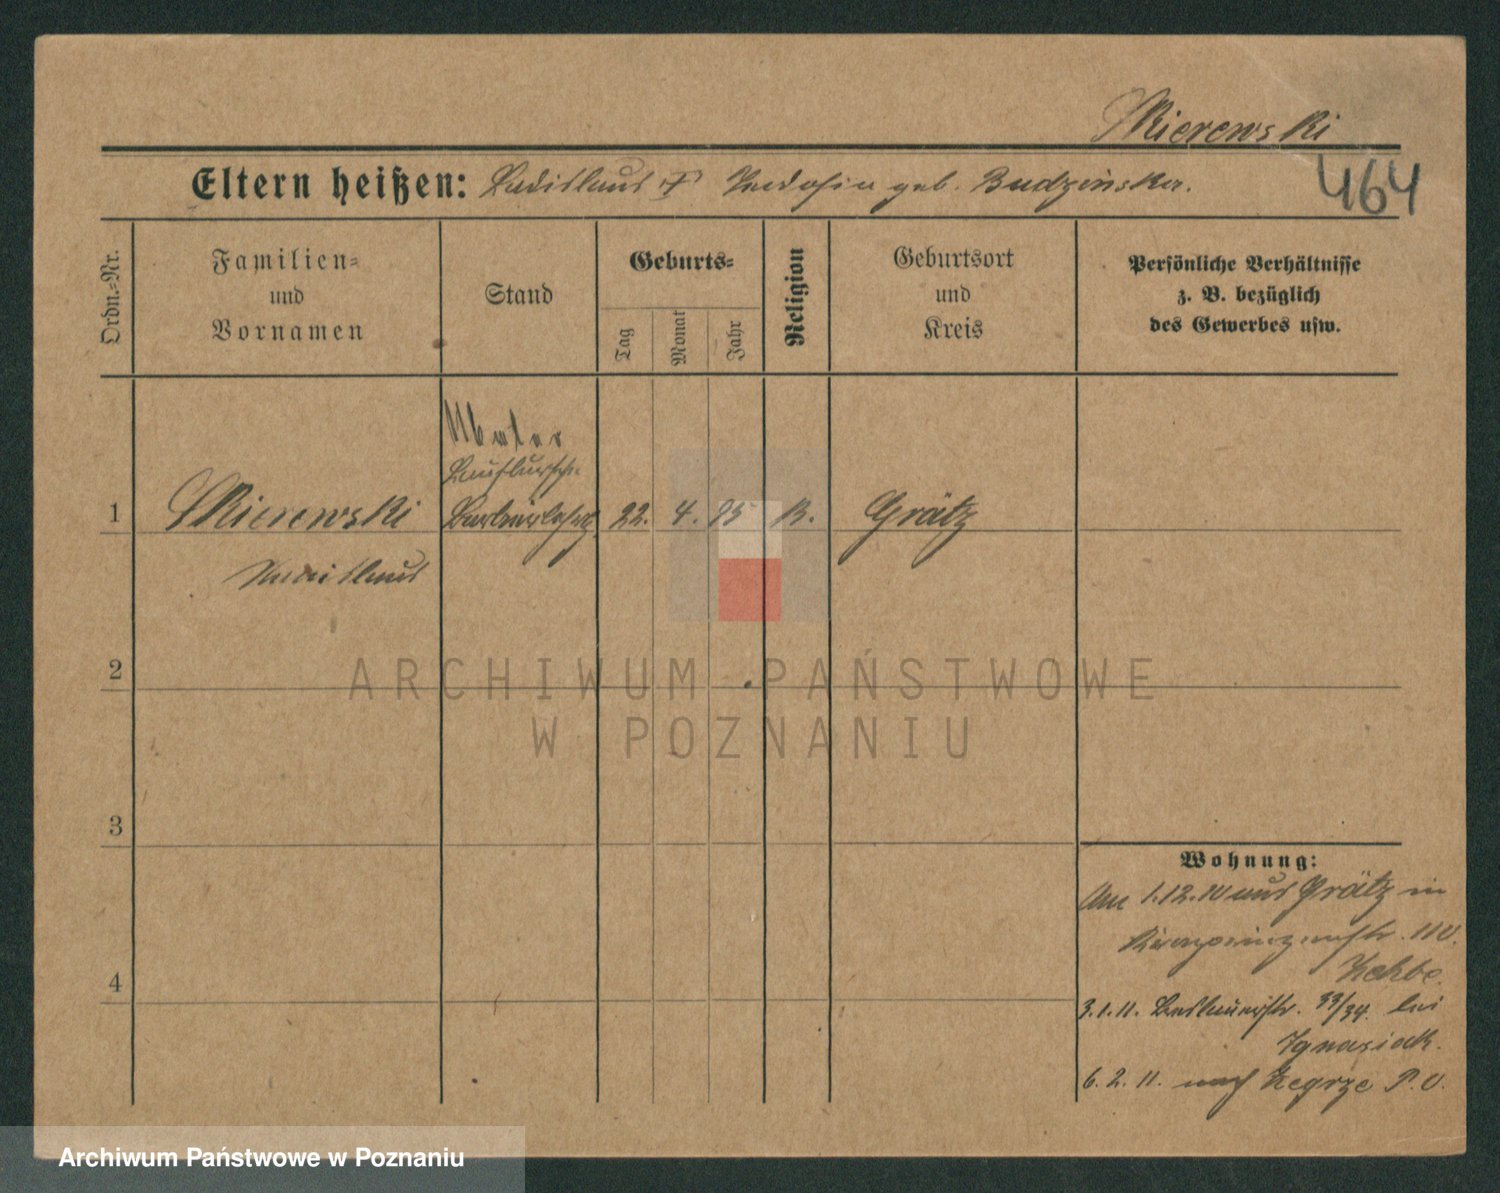 Skierewski
464
Eltern heißen: Ladislaus geb. Budzinska.
Ordn.-Nr.
Familien-
und
Vornamen
Stand
Geburts-
Tag
Monat
Jahr
Religion
Geburtsort
und
Kreis
Persönliche Verhältnisse
z. B. bezüglich
des Gewerbes usw.
Maler
Laufbursche
1 Skierewski 22. 4. 95 K. Grätz
2
3
4
Wohnung:
Am 1.12.10 aus Grätz in
Kronprinzenstr.
3.1.11. 33/34. bei
Ignasiak.
6.2.11. nach Zegrze P.O.
ARCHIWUM PAŃSTWOWE
W POZNANIU
Archiwum Państwowe w Poznaniu